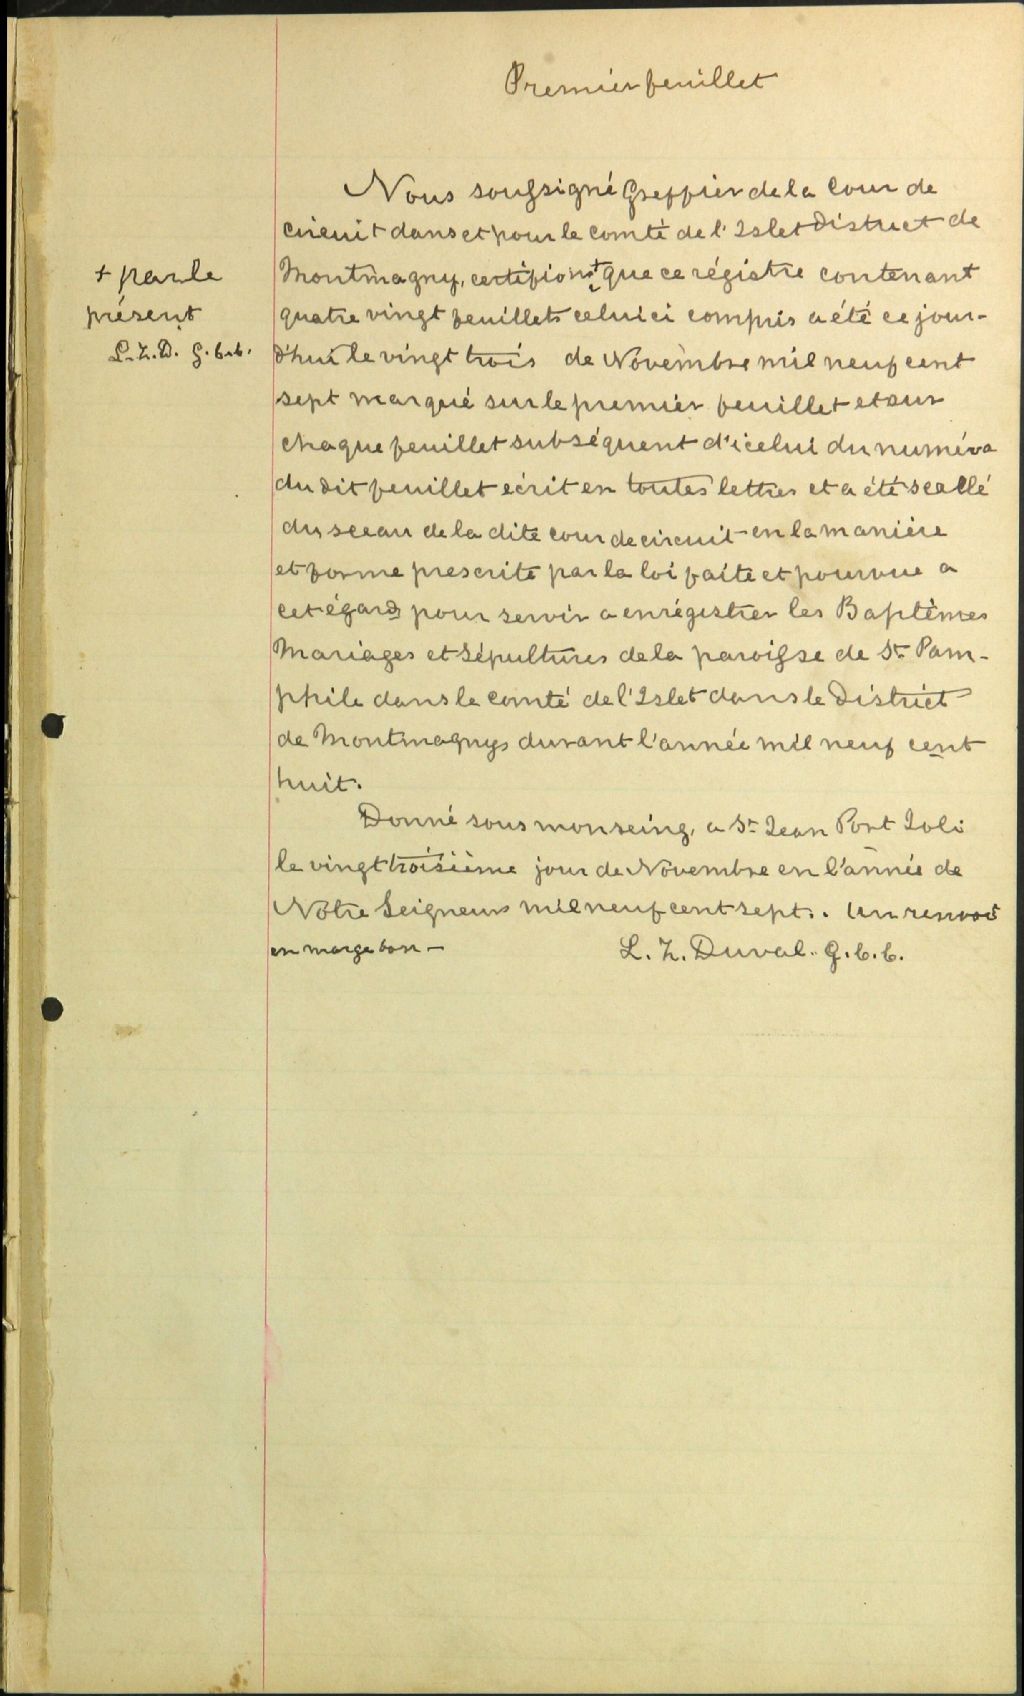 Premier feuillet
Nous soussigné Greffier de la Cour de
circuit dans et pour le comté de l'Islet District de
Montmagny, certifions + que ce régistre contenant
+ par le
présent
L.Z.D. G.C.C.
quatre vingt feuillets celui ci compris a été ce jour-
d'hui le vingt trois de Novembre mil neuf cent
sept marqué sur le premier feuillet et sur
chaque feuillet subséquent d'icelui du numéro
du dit feuillet écrit en toutes lettres et a été scellé
du sceau de la dite cour de circuit en la manière
et forme prescrite par la loi faite et pourvue a
cet égard pour servir a enrégistrer les Baptêmes
Mariages et Sépultures de la paroisse de St. Pam-
phile dans le comté de l'Islet dans le District
de Montmagny durant l'année mil neuf cent
huit.
Donné sous mon seing, a St. Jean Port Joli
le vingt troisième jour de Novembre en l'année de
Notre Seigneur mil neuf cent sept. Un renvoi
en marge bon —
L. Z. Duval. G.C.C.